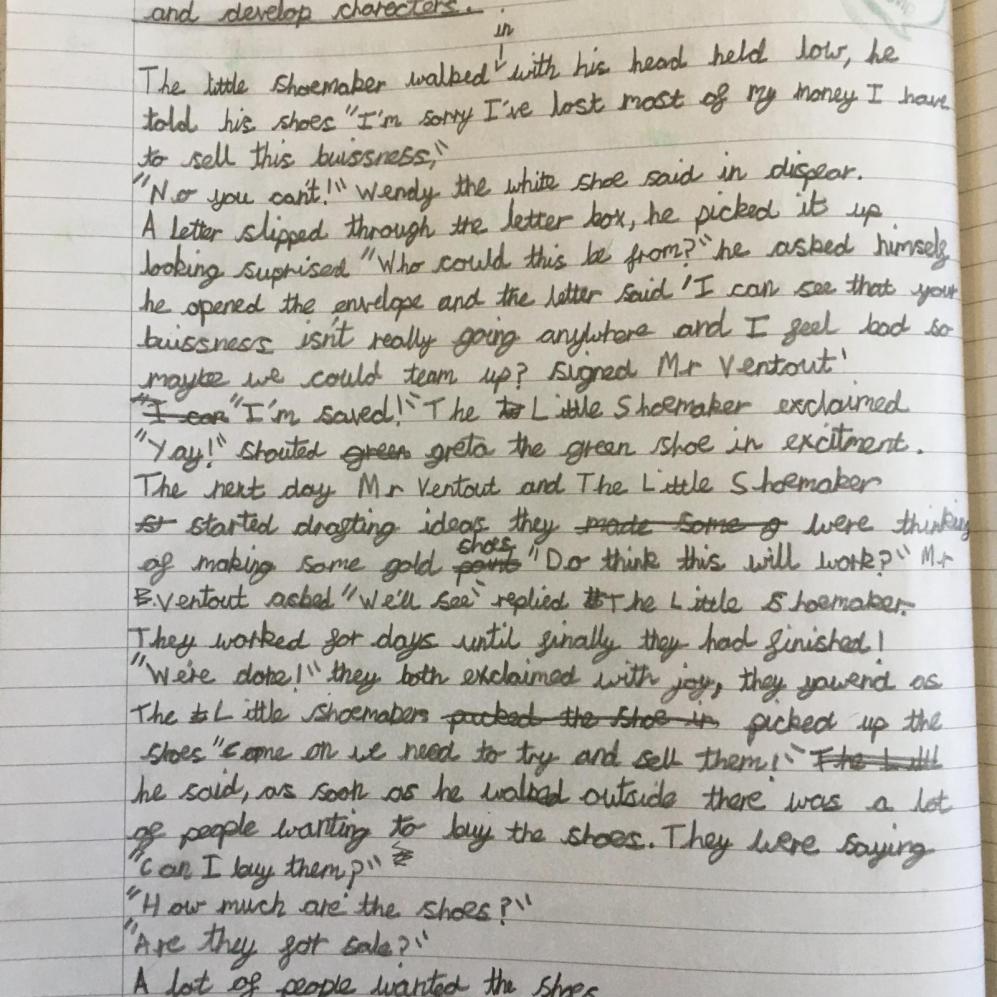 and develop charecters.
in
The little shoemaker walked with his head held low, he
told his shoes "I'm sorry I've lost most of my money I have
to sell this buissness,"
"No you can't!" Wendy the white shoe said in dispear.
A letter slipped through the letter box, he picked it up
looking suprised "Who could this be from?" he asked himself
he opened the envelope and the letter said 'I can see that your
buissness isn't really going anywhere and I feel bad so
maybe we could team up? signed Mr Ventout'
"I can "I'm saved!" The Little Shoemaker exclaimed
"Yay!" shouted green greta the green shoe in excitment.
The next day Mr Ventout and The Little Shoemaker
started drafting ideas they made some g were thinking
shoes
of making some gold "Do think this will work?" Mr
B.Ventout asked "We'll see" replied The Little Shoemaker.
They worked for days until finally they had finished!
"We're done!" they both exclaimed with joy, they yawend as
The Little shoemaker picked the shoe in picked up the
shoes "Come on we need to try and sell them!" The Littl
he said, as soon as he walked outside there was a lot
of people wanting to buy the shoes. They were saying
"Can I buy them?"
"How much are the shoes?"
"Are they for sale?"
A lot of people wanted the shoes